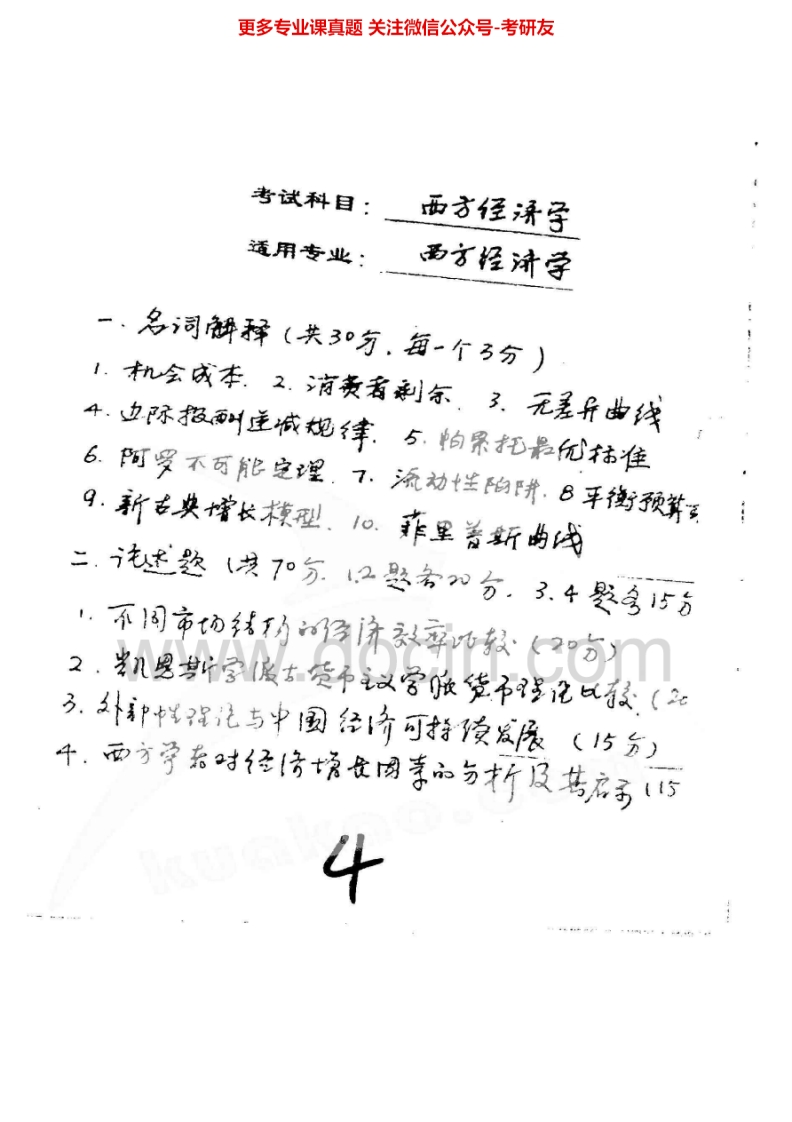 更多专业课真题 关注微信公众号-考研友
考试科目: 西方经济学
适用专业: 西方经济学
一. 名词解释 (共30分, 每一个3分)
1. 机会成本. 2. 消费者剩余. 3. 无差异曲线
4. 边际报酬递减规律. 5. 帕累托最优标准
6. 阿罗不可能定理. 7. 流动性陷阱. 8 平衡预算
9. 新古典增长模型. 10. 菲里普斯曲线
二. 论述题 (共70分. 1.2题各20分. 3.4题各15分
1. 不同市场结构的经济效率比较 (20分)
www.docin.com
2. 凯恩斯学派与货币主义学派货币理论比较. (20
3. 外部性理论与中国经济可持续发展 (15分)
4. 西方学者对经济增长因素的分析及其启示 (15
4
kuakao.com